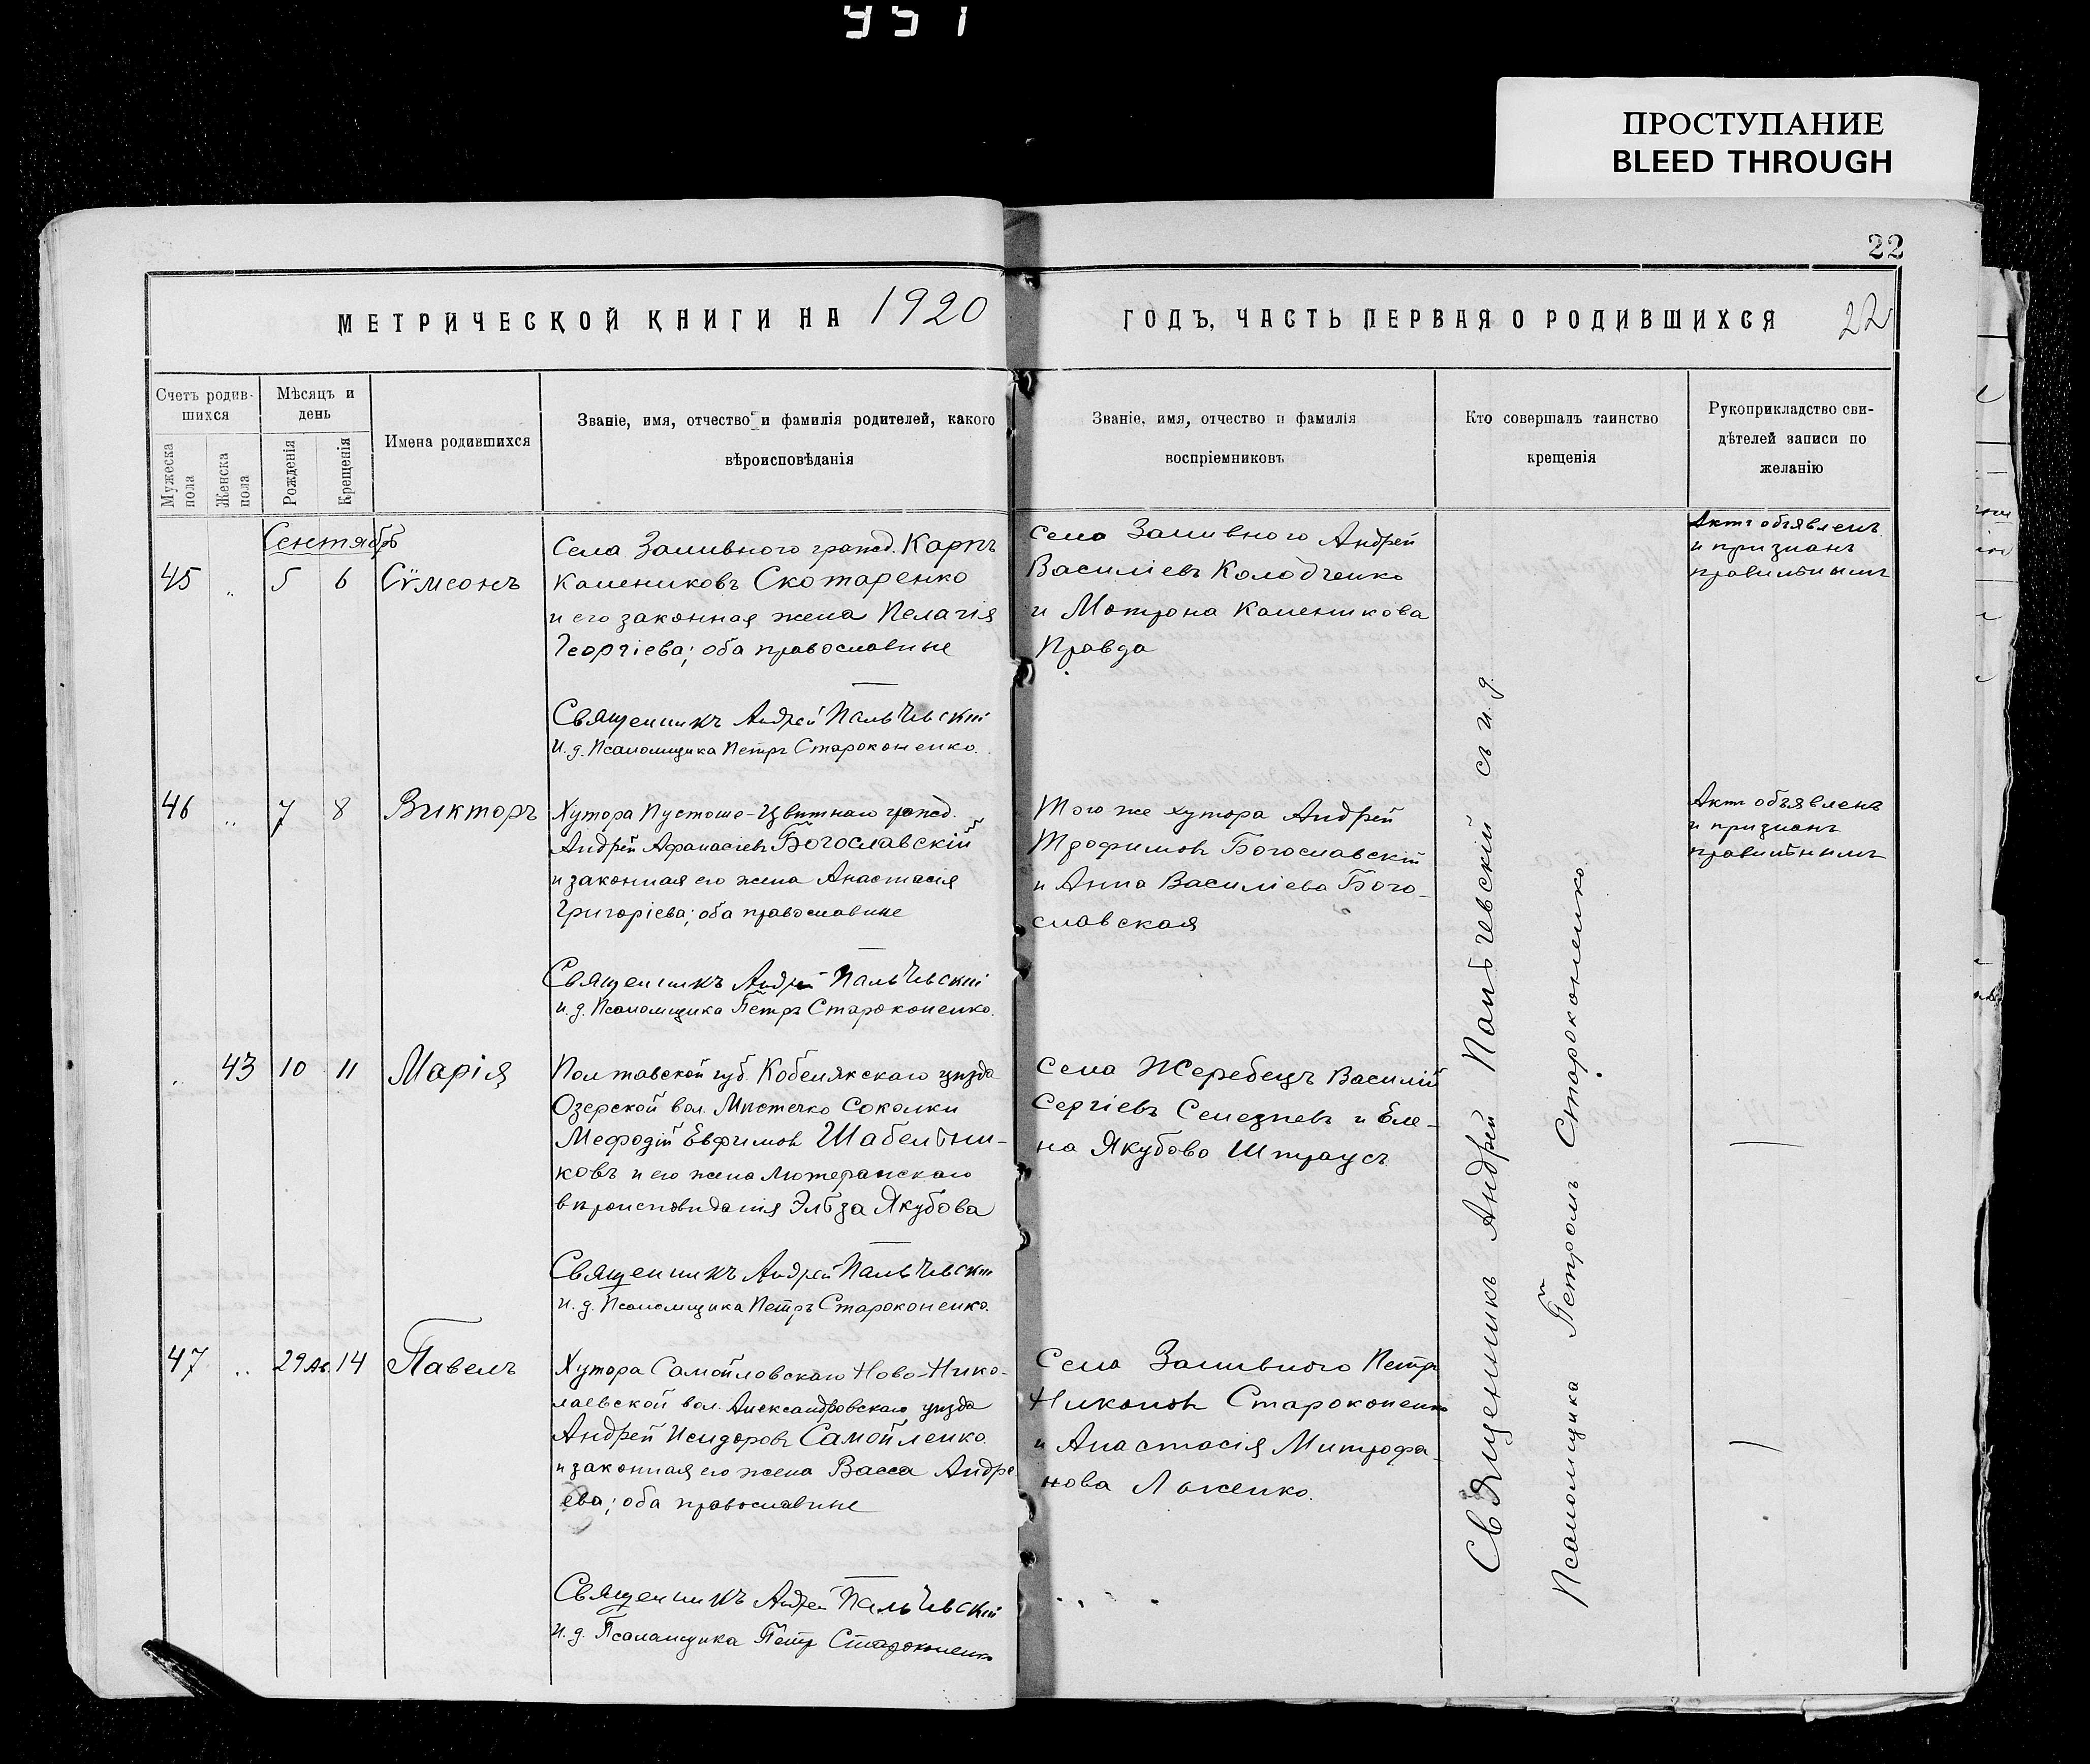 951
ПРОСТУПАНИЕ
BLEED THROUGH
22
МЕТРИЧЕСКОЙ КНИГИ НА 1920
ГОДЪ, ЧАСТЬ ПЕРВАЯ О РОДИВШИХСЯ 22
Счетъ родив-
шихся
Мужеска
пола
Женска
пола
Мѣсяцъ и
день
Рожденія
Крещенія
Имена родившихся
Званіе, имя, отчество и фамилія родителей, какого
вѣроисповѣданія
Званіе, имя, отчество и фамилія
воспріемниковъ
Кто совершалъ таинство
крещенія
Рукоприкладство сви-
дѣтелей записи по
желанію
Сентябрь
45 " 5 6 Сѵмеонъ
Села Заливного гражд. Карпъ
Калениковъ Скотаренко
и его законная жена Пелагія
Георгіева; оба православные
Священникъ Андрей Пальчевскій
и. д. Псаломщика Петръ Староконенко.
Села Заливного Андрей
Василіевъ Колодченко
и Мотрона Каленикова
Правда
Актъ объявленъ
и признанъ
правильнымъ
46 " 7 8 Викторъ
Хутора Пустоше-Цвѣтнаго гражд.
Андрей Афанасіевъ Богославскій
и законная его жена Анастасія
Григоріева; оба православные
Священникъ Андрей Пальчевскій
и. д. Псаломщика Петръ Староконенко.
Того же хутора Андрей
Трофимовъ Богославскій
и Анна Василіева Бого-
славская
Актъ объявленъ
и признанъ
правильнымъ
" 43 10 11 Марія
Полтавской губ. Кобелякскаго уѣзда
Озерской вол. Мѣстечко Соколки
Мефодій Евфимовъ Шабельни-
ковъ и его жена Лютеранскаго
вѣроисповѣданія Эльза Якубова
Священникъ Андрей Пальчевскій
и. д. Псаломщика Петръ Староконенко.
Села Жеребецъ Василій
Сергіевъ Селезневъ и Еле-
на Якубова Штраусъ
47 " 29 Ав. 14 Павелъ
Хутора Самойловскаго Ново-Нико-
лаевской вол. Александровскаго уѣзда
Андрей Исидоровъ Самойленко
и законная его жена Васса Андре
ева; оба православные
Священникъ Андрей Пальчевскій
и. д. Псаломщика Петр Староконенко
Села Заливного Петръ
Никоновъ Староконенко
и Анастасія Митрофа-
нова Лаженко.
Священникъ Андрей Пальчевскій съ и. д.
Псаломщика Петромъ Староконенко